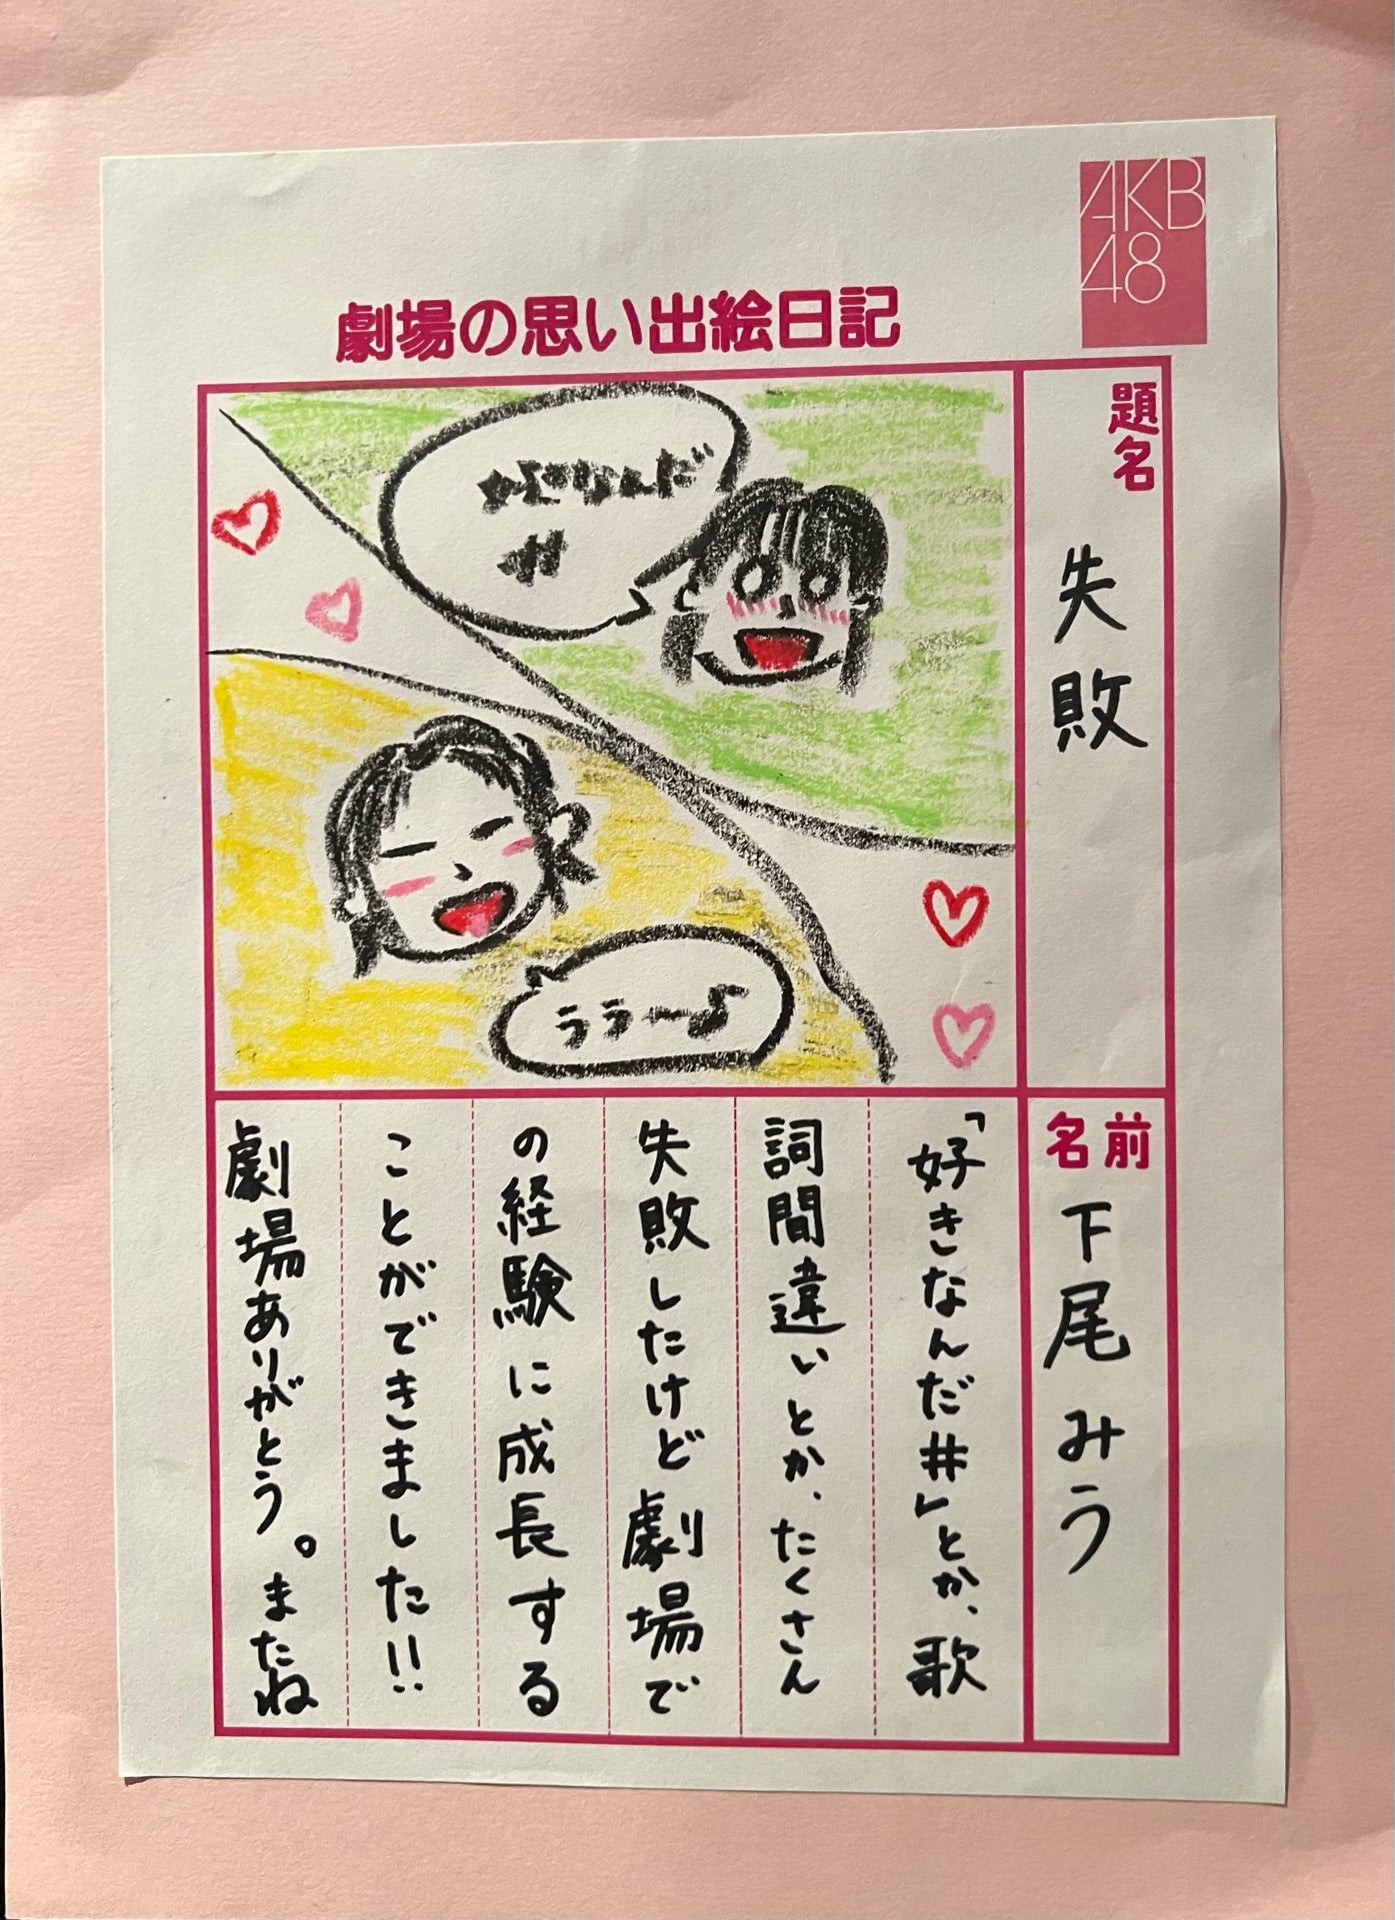 AKB
48
劇場の思い出絵日記
題名
失敗
名前
下尾みう
好きなんだ
#
ララ〜♪
「好きなんだ#」とか、歌
詞間違いとか、たくさん
失敗したけど劇場で
の経験に成長する
ことができました!!
劇場ありがとう。またね